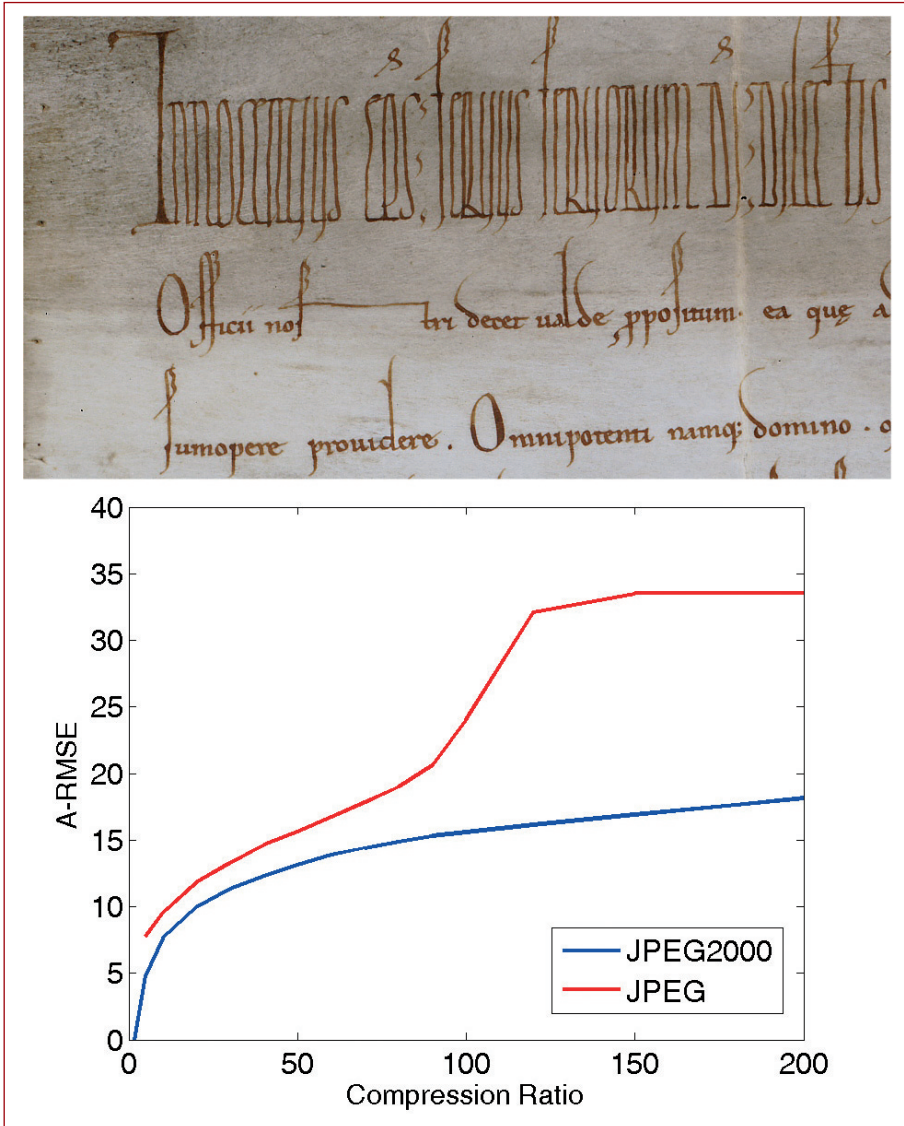 Innocentius eps. seruus seruorum di. dilectis
Officii nostri decet ualde ppositum. ea quę a
sumopere prouidere. Omnipotenti namq; domino. q
40
35
30
25
20
15
10
5
0
0 50 100 150 200
A-RMSE
Compression Ratio
JPEG2000
JPEG